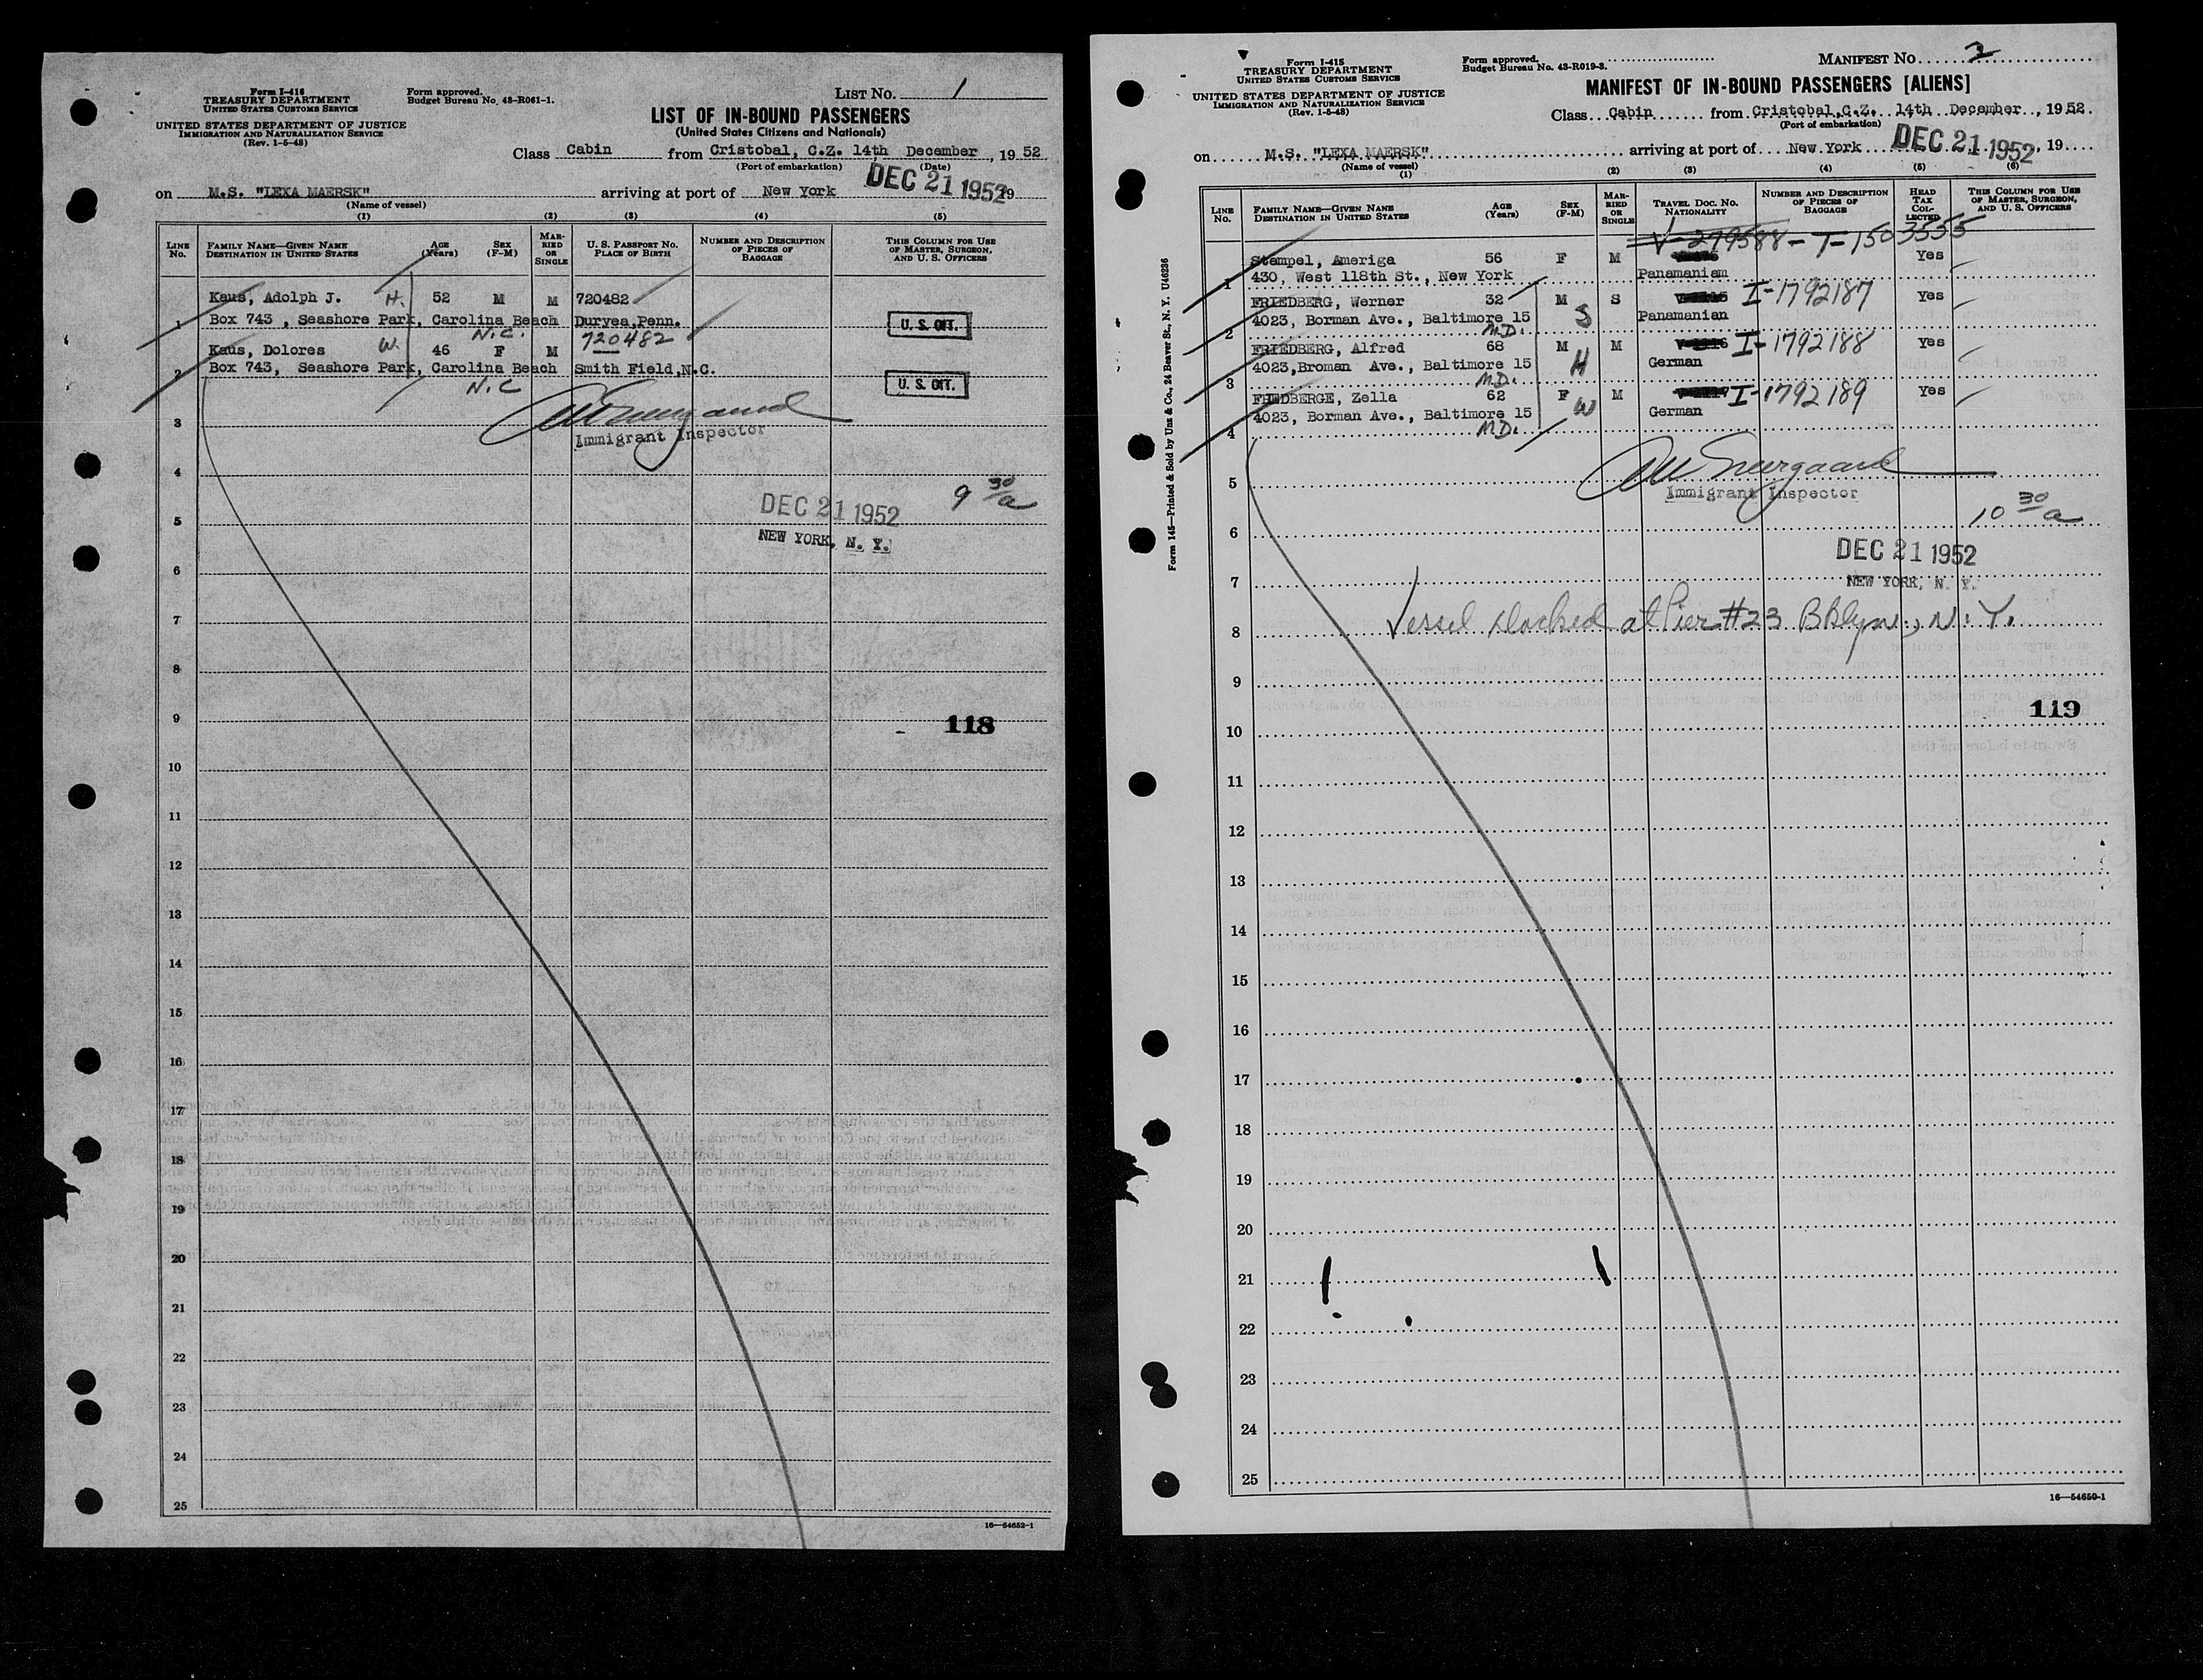 Form I-416
TREASURY DEPARTMENT
UNITED STATES CUSTOMS SERVICE
UNITED STATES DEPARTMENT OF JUSTICE
IMMIGRATION AND NATURALIZATION SERVICE
(Rev. 1-5-48)
Form approved.
Budget Bureau No. 43-R061-1.
LIST NO. 1
LIST OF IN-BOUND PASSENGERS
(United States Citizens and Nationals)
Class Cabin from Cristobal, C.Z. 14th December, 1952
(Port of embarkation) (Date)
on M.S. "LEXA MAERSK" arriving at port of New York DEC 21 1952 19
(Name of vessel)
(1) (2) (3) (4) (5)
LINE NO. FAMILY NAME—GIVEN NAME DESTINATION IN UNITED STATES AGE (Years) SEX (F-M) MARRIED OR SINGLE U. S. PASSPORT NO. PLACE OF BIRTH NUMBER AND DESCRIPTION OF PIECES OF BAGGAGE THIS COLUMN FOR USE OF MASTER, SURGEON, AND U. S. OFFICERS
Kaus, Adolph J. H. 52 M M 720482
1 Box 743 , Seashore Park, Carolina Beach Duryea,Penn. U. S. CIT.
N.C. 720482
Kaus, Dolores W. 46 F M
2 Box 743, Seashore Park, Carolina Beach Smith Field,N.C. U. S. CIT.
N.C
3
Immigrant Inspector
4
9 30/a
DEC 21 1952
5
NEW YORK, N. Y.
6
7
8
9
118
10
11
12
13
14
15
16
17
18
19
20
21
22
23
24
25
16—54652-1
Form I-415
TREASURY DEPARTMENT
UNITED STATES CUSTOMS SERVICE
UNITED STATES DEPARTMENT OF JUSTICE
IMMIGRATION AND NATURALIZATION SERVICE
(Rev. 1-5-48)
Form approved.
Budget Bureau No. 43-R019-3.
MANIFEST NO. 2
MANIFEST OF IN-BOUND PASSENGERS [ALIENS]
Class Cabin from Cristobal,C.Z. 14th December, 1952.
(Port of embarkation)
on M.S. "LEXA MAERSK" arriving at port of New York DEC 21 1952, 19
(Name of vessel)
(1) (2) (3) (4) (5) (6)
LINE NO. FAMILY NAME—GIVEN NAME DESTINATION IN UNITED STATES AGE (Years) SEX (F-M) MARRIED OR SINGLE TRAVEL DOC. NO. NATIONALITY NUMBER AND DESCRIPTION OF PIECES OF BAGGAGE HEAD TAX COLLECTED THIS COLUMN FOR USE OF MASTER, SURGEON, AND U. S. OFFICERS
V-279588-T-1503555
Stempel, Ameriga 56 F M Yes
1 430, West 118th St., New York Panamaniam
FRIEDBERG, Werner 32 M S I-1792187 Yes
2 4023, Borman Ave., Baltimore 15 S Panamanian
M.D.
FRIEDBERG, Alfred 68 M M I-1792188 Yes
3 4023,Broman Ave., Baltimore 15 H German
M.D.
FRIEDBERGE, Zella 62 F M I-1792189 Yes
4 4023, Borman Ave., Baltimore 15 W German
M.D.
5
Immigrant Inspector
10 30/a
6
DEC 21 1952
7
NEW YORK, N. Y.
8 Vessel docked at Pier #23 Bklyn., N.Y.
9
119
10
11
12
13
14
15
16
17
18
19
20
21
22
23
24
25
16—54650-1
Form 145—Printed & Sold by Unz & Co., 24 Beaver St., N. Y. U46236